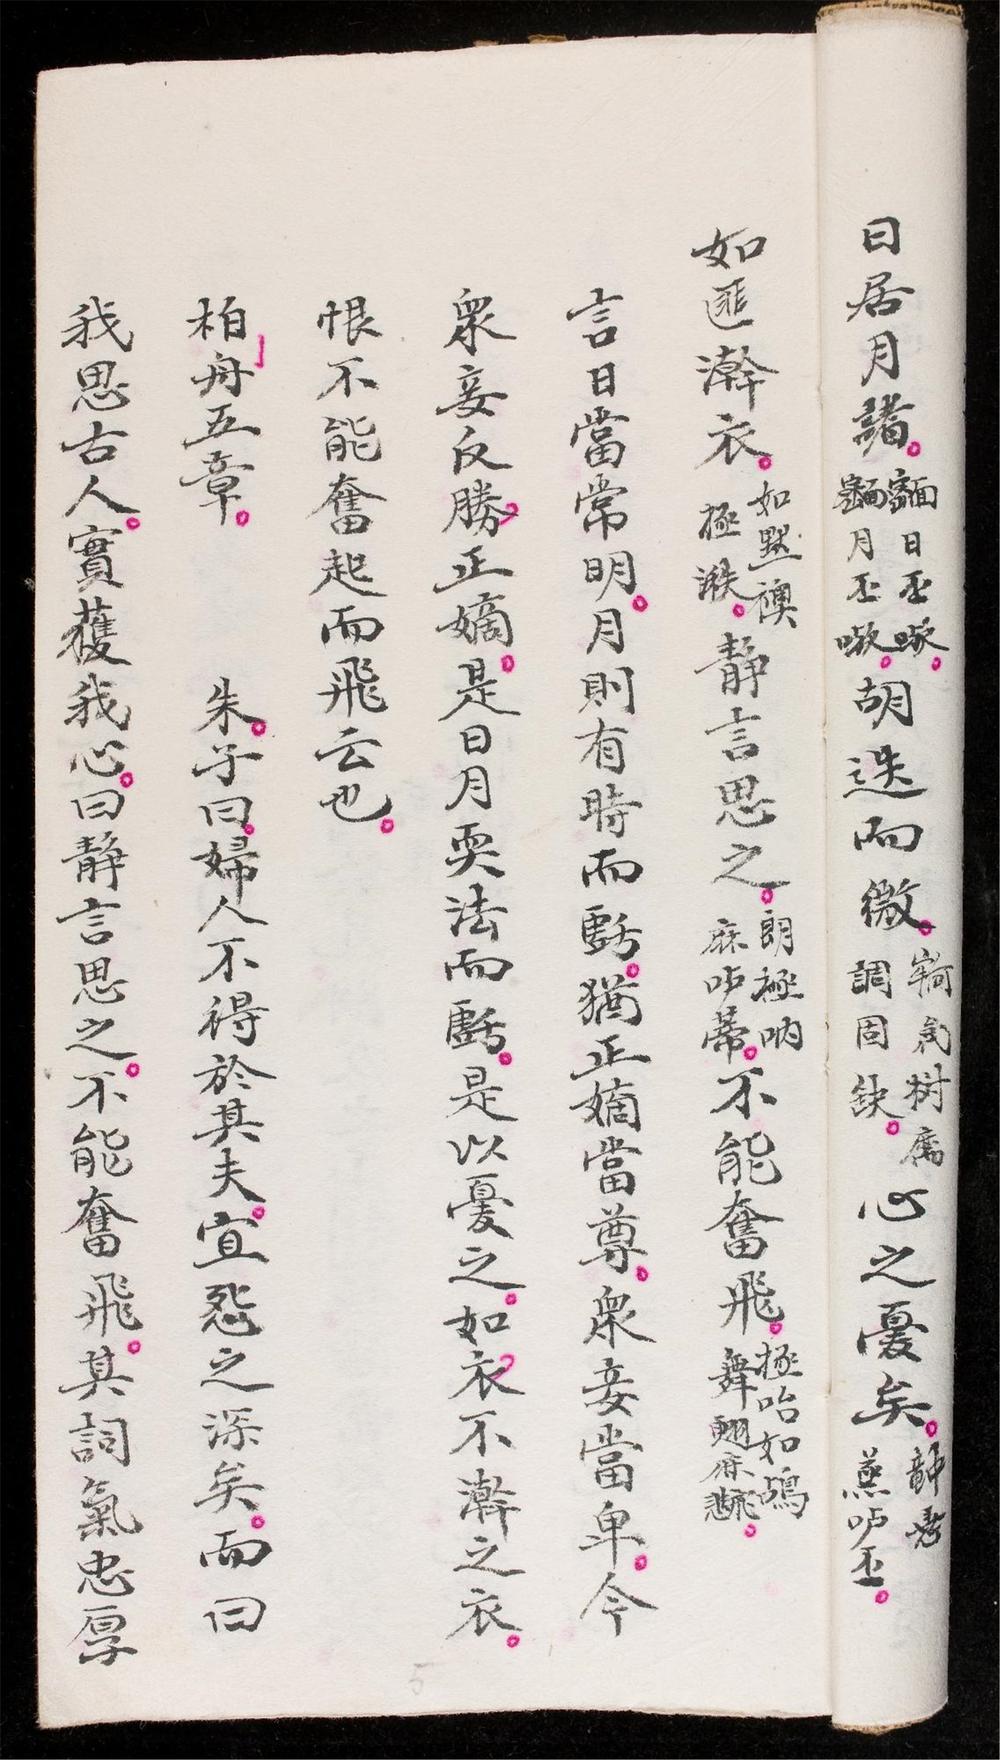 日居月諸。𩈘日丕。𩈘月丕。胡迭而微。樹調固缺。心之憂矣。
如匪澣衣。如默襖極。静言思之。朗極吶麻。不能奮飛。極咍如舞翅麻。
言日當常明。月則有時而虧。猶正嫡當尊。衆妾當卑。今
衆妾反勝正嫡。是日月更法而虧。是以憂之。如衣不澣之衣。
恨不能奮起而飛云也。
柏舟五章。 朱子曰。婦人不得於其夫。宜怨之深矣。而曰
我思古人。實獲我心。曰静言思之。不能奮飛。其詞氣忠厚
5